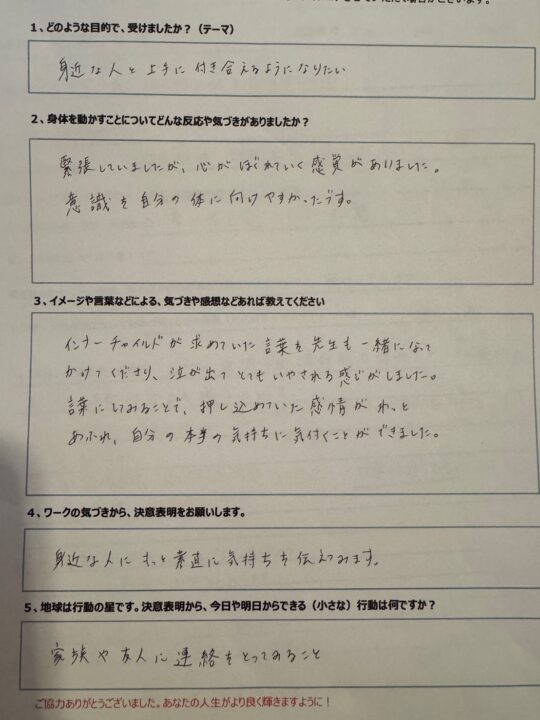 1、どのような目的で、受けましたか？（テーマ）
身近な人と上手に付き合えるようになりたい
2、身体を動かすことについてどんな反応や気づきがありましたか？
緊張していましたが、心がほぐれていく感覚がありました。
意識を自分の体に向けやすかったです。
3、イメージや言葉などによる、気づきや感想などあれば教えてください
インナーチャイルドが求めていた言葉を先生も一緒になって
かけてくださり、泣が出てとてもいやされる感じがしました。
言葉にしてみることで、押し込めていた感情がわっと
あふれ、自分の本当の気持ちに気付くことができました。
4、ワークの気づきから、決意表明をお願いします。
身近な人にもっと素直に気持ちを伝えてみます。
5、地球は行動の星です。決意表明から、今日や明日からできる（小さな）行動は何ですか？
家族や友人に連絡をとってみること
ご協力ありがとうございました。あなたの人生がより良く輝きますように！